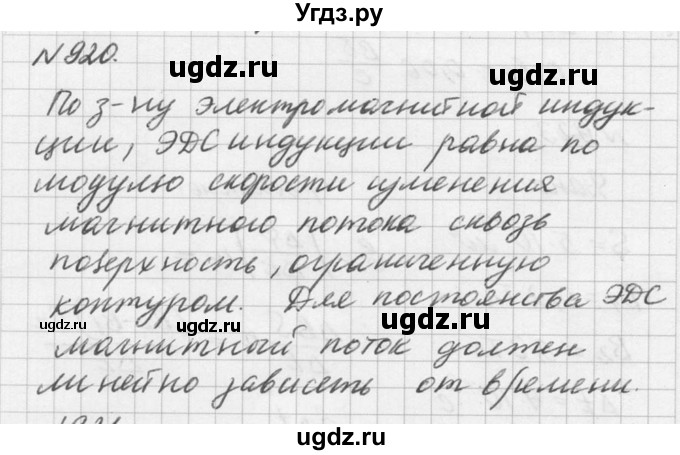 Угдз.ру
N 920.
По з-ну электромагнитной индук-
ции, ЭДС индукции равна по
модулю скорости изменения
магнитного потока сквозь
поверхность, ограниченную
контуром. Для постоянства ЭДС
магнитный поток должен
линейно зависеть от времени.
ugdz.ru
ugdz.ru
ugdz.ru
ugdz.ru
ugdz.ru
ugdz.ru
ugdz.ru